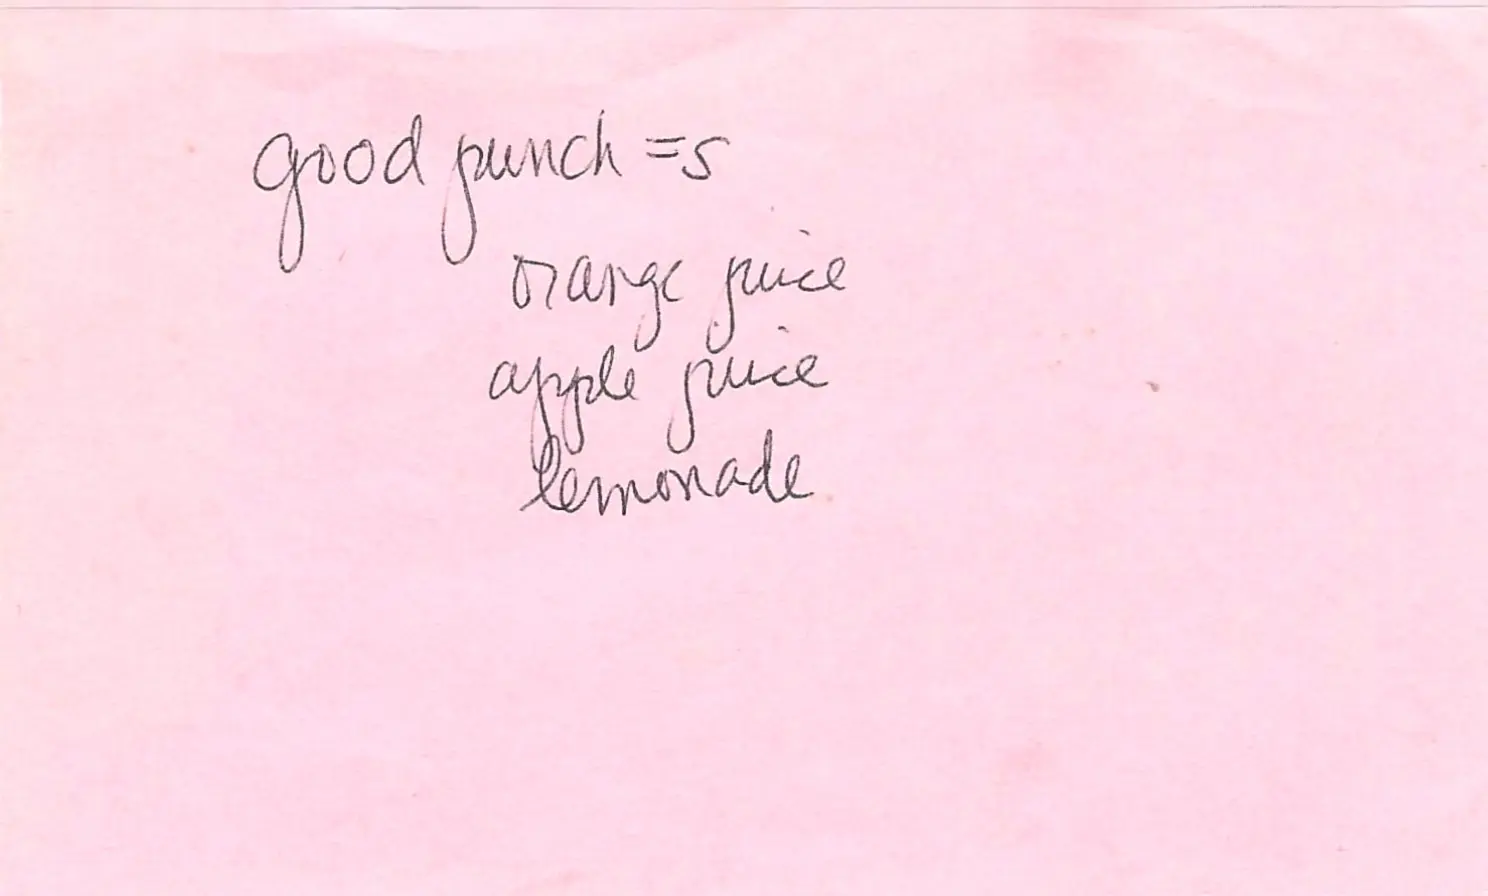 good punch =s
orange juice
apple juice
lemonade